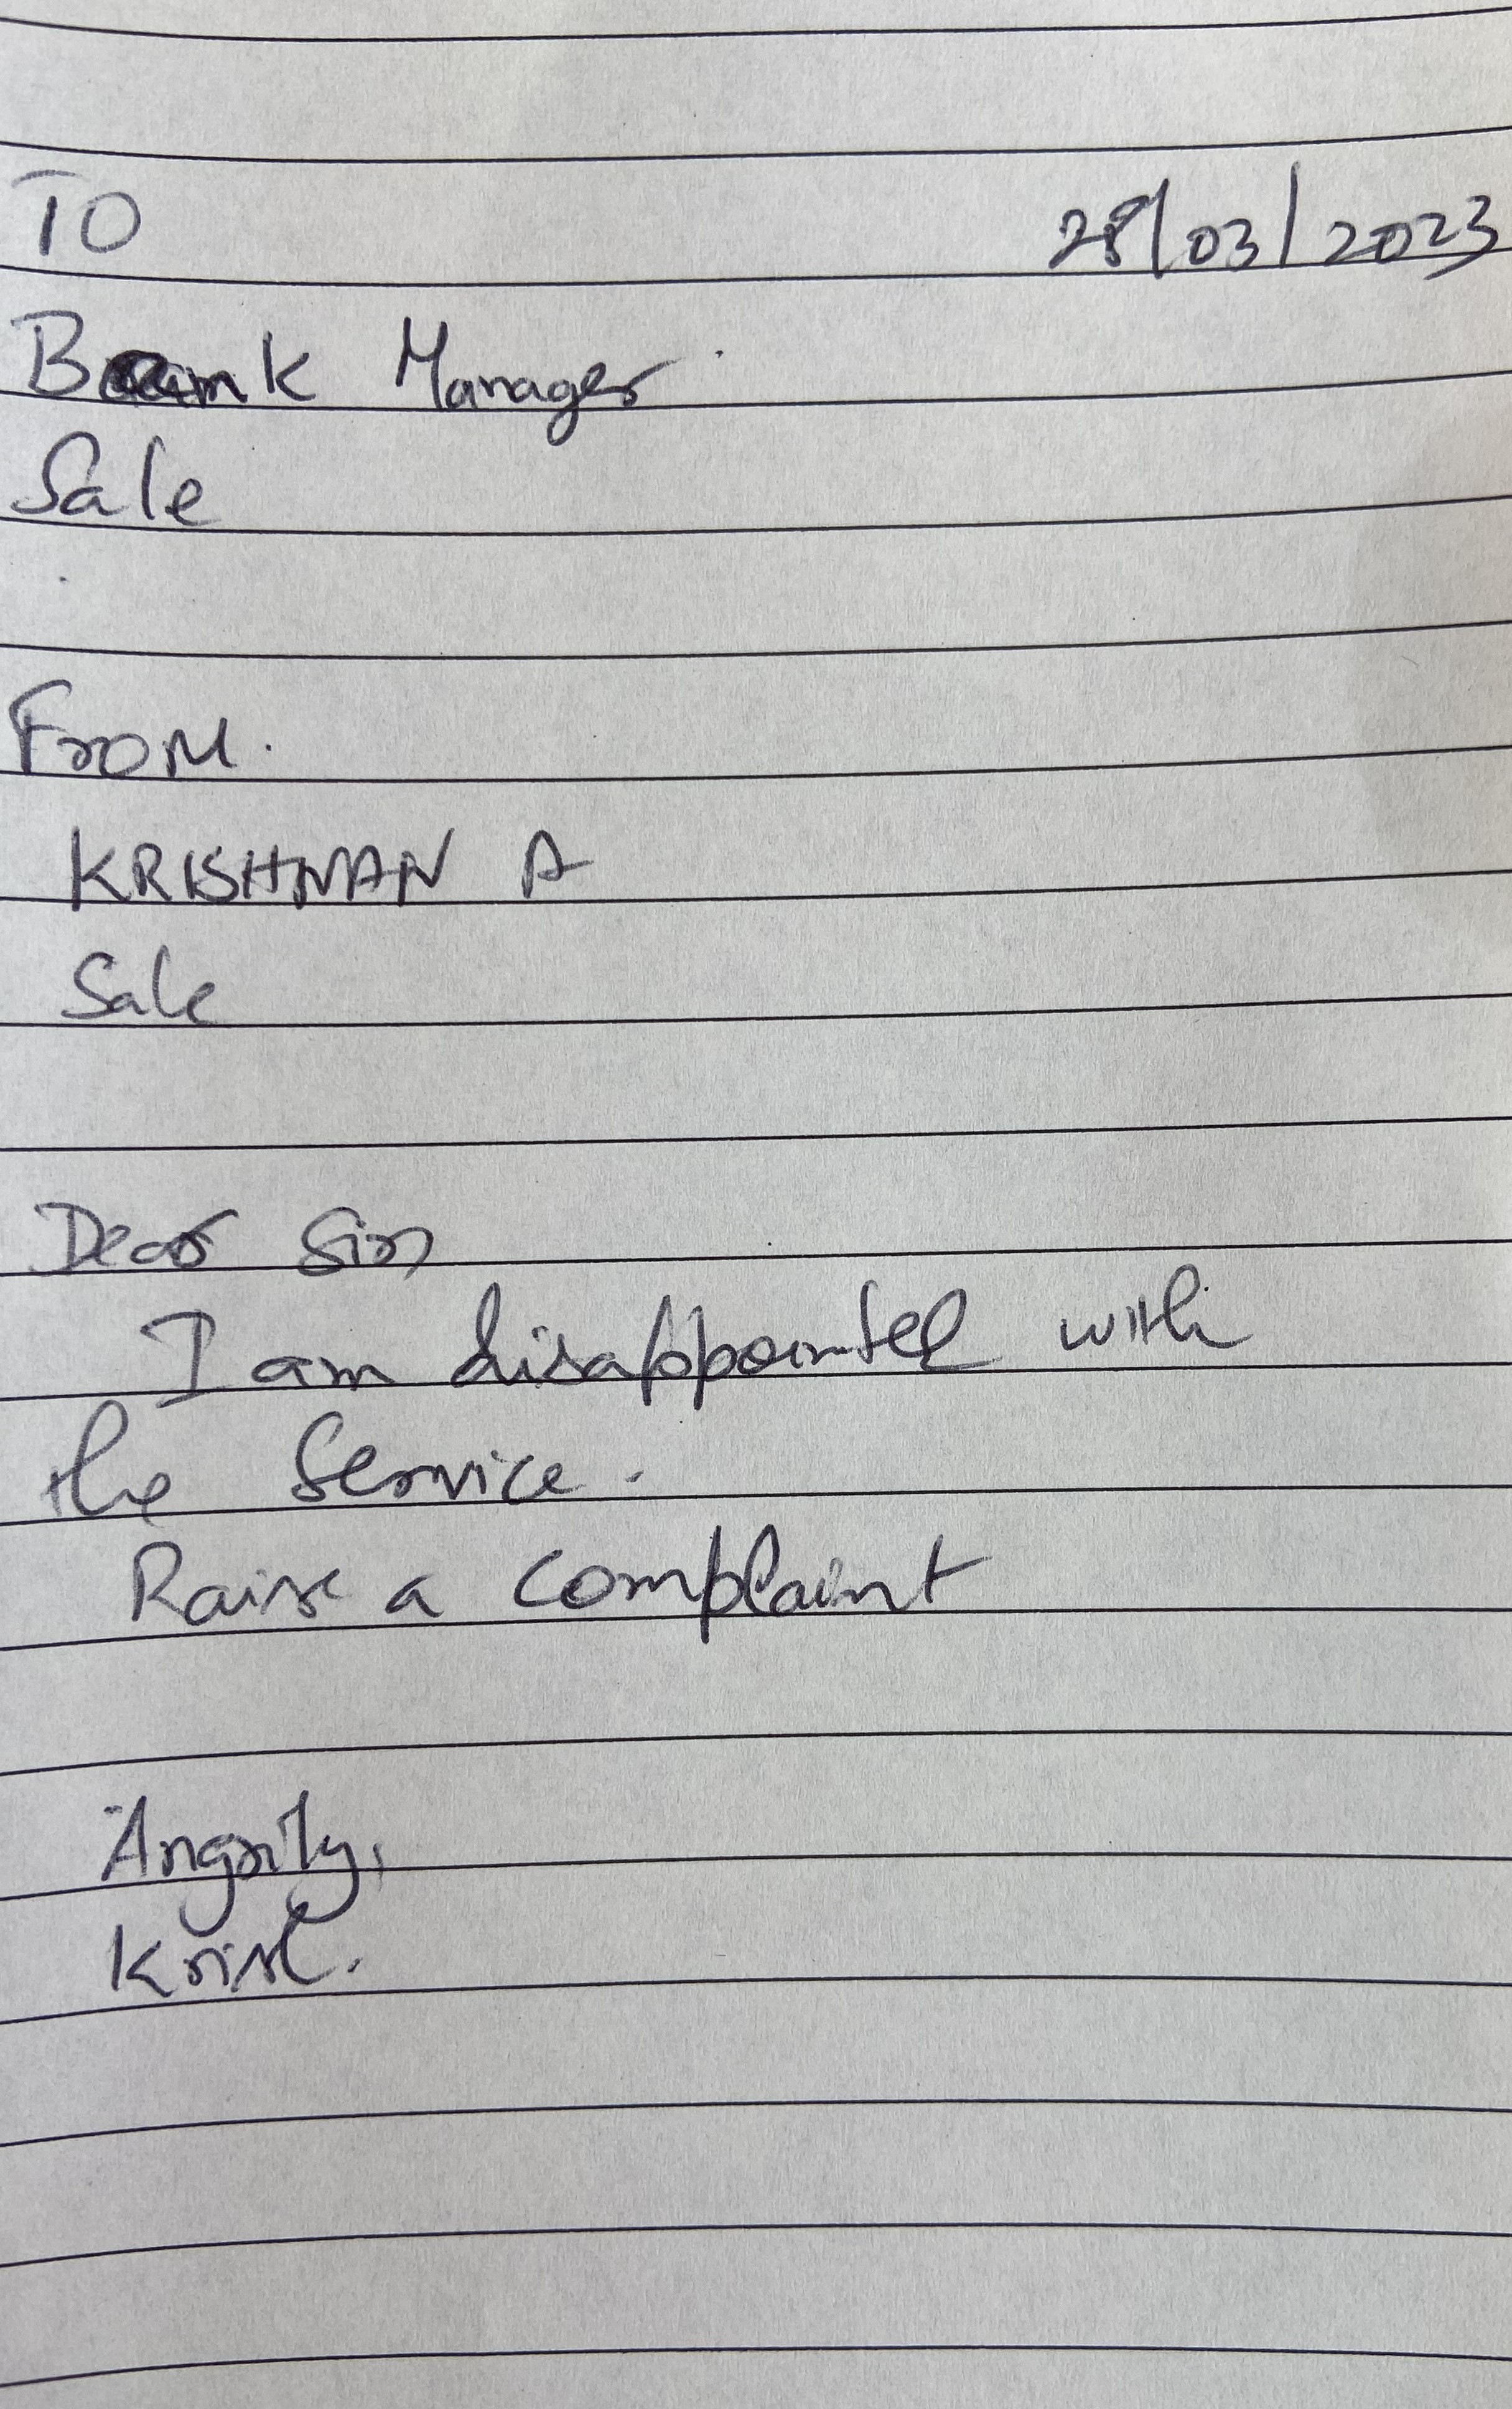 TO 28/03/2023
Bank Manager.
Sale
From.
KRISHNAN A
Sale
Dear Sir
I am disappointed with
the Service.
Raise a complaint
Angrily,
Krish.